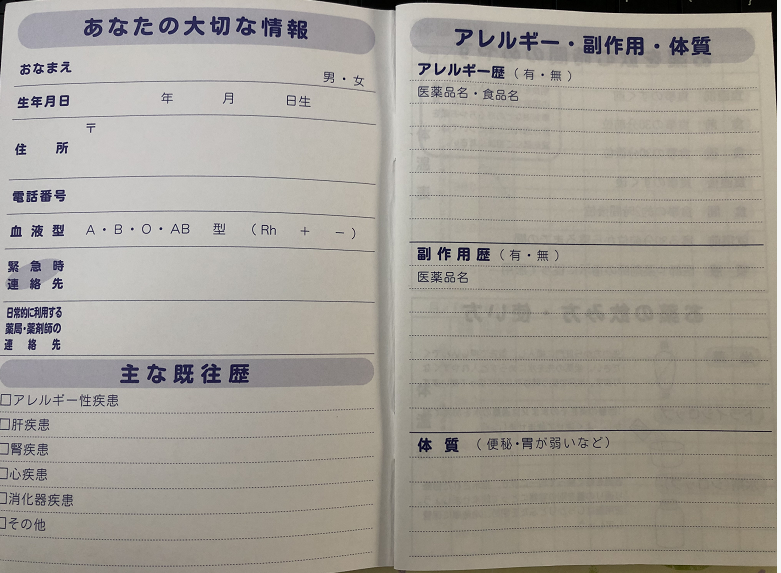 あなたの大切な情報
おなまえ 男・女
生年月日 年 月 日生
〒
住所
電話番号
血液型 A・B・O・AB 型 (Rh + −)
緊急時
連絡先
日常的に利用する
薬局・薬剤師の
連絡先
主な既往歴
□アレルギー性疾患
□肝疾患
□腎疾患
□心疾患
□消化器疾患
□その他
アレルギー・副作用・体質
アレルギー歴（有・無）
医薬品名・食品名
副作用歴（有・無）
医薬品名
体質（便秘・胃が弱いなど）